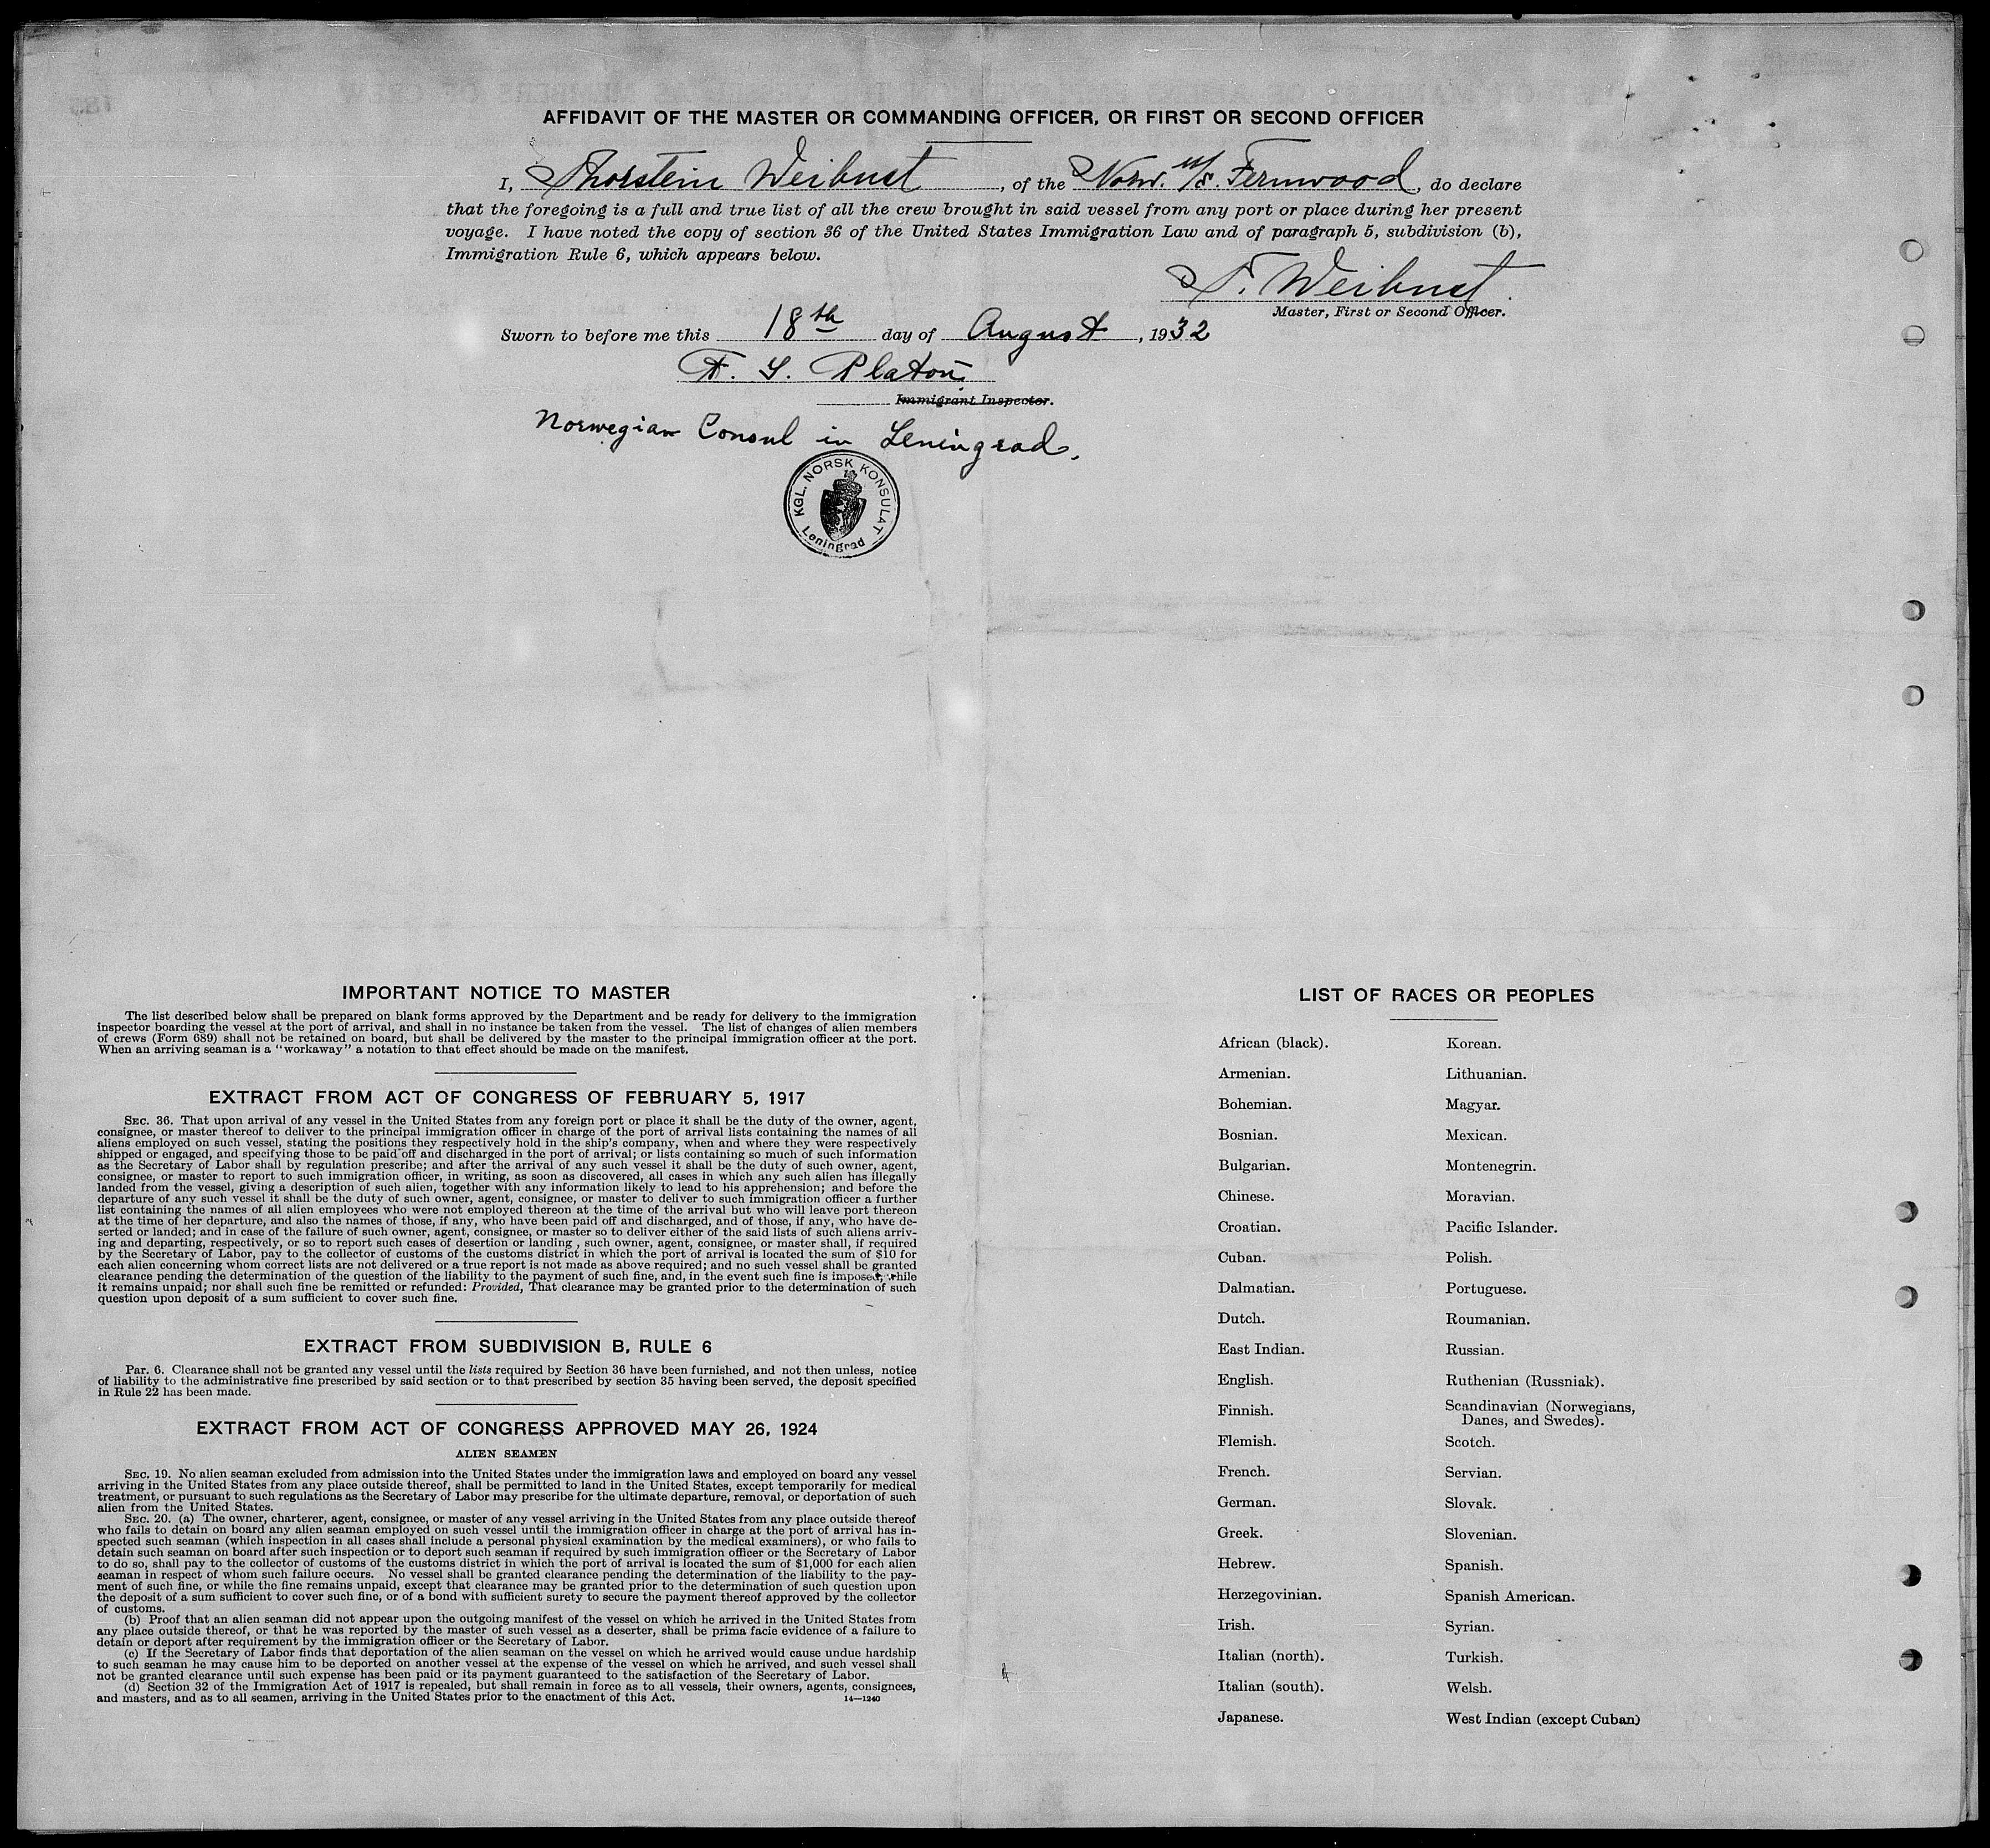 AFFIDAVIT OF THE MASTER OR COMMANDING OFFICER, OR FIRST OR SECOND OFFICER
I, Thorstein Weibust, of the Norw. M/S. Fernwood, do declare
that the foregoing is a full and true list of all the crew brought in said vessel from any port or place during her present
voyage. I have noted the copy of section 36 of the United States Immigration Law and of paragraph 5, subdivision (b),
Immigration Rule 6, which appears below.
T. Weibust
Master, First or Second Officer.
Sworn to before me this 18th day of August, 1932
Platou
Immigrant Inspector.
Norwegian Consul in Leningrad.
KGL. NORSK KONSULAT
Leningrad
IMPORTANT NOTICE TO MASTER
The list described below shall be prepared on blank forms approved by the Department and be ready for delivery to the immigration
inspector boarding the vessel at the port of arrival, and shall in no instance be taken from the vessel. The list of changes of alien members
of crews (Form 689) shall not be retained on board, but shall be delivered by the master to the principal immigration officer at the port.
When an arriving seaman is a "workaway" a notation to that effect should be made on the manifest.
EXTRACT FROM ACT OF CONGRESS OF FEBRUARY 5, 1917
SEC. 36. That upon arrival of any vessel in the United States from any foreign port or place it shall be the duty of the owner, agent,
consignee, or master thereof to deliver to the principal immigration officer in charge of the port of arrival lists containing the names of all
aliens employed on such vessel, stating the positions they respectively hold in the ship's company, when and where they were respectively
shipped or engaged, and specifying those to be paid off and discharged in the port of arrival; or lists containing so much of such information
as the Secretary of Labor shall by regulation prescribe; and after the arrival of any such vessel it shall be the duty of such owner, agent,
consignee, or master to report to such immigration officer, in writing, as soon as discovered, all cases in which any such alien has illegally
landed from the vessel, giving a description of such alien, together with any information likely to lead to his apprehension; and before the
departure of any such vessel it shall be the duty of such owner, agent, consignee, or master to deliver to such immigration officer a further
list containing the names of all alien employees who were not employed thereon at the time of the arrival but who will leave port thereon
at the time of her departure, and also the names of those, if any, who have been paid off and discharged, and of those, if any, who have de-
serted or landed; and in case of the failure of such owner, agent, consignee, or master so to deliver either of the said lists of such aliens arriv-
ing and departing, respectively, or so to report such cases of desertion or landing , such owner, agent, consignee, or master shall, if required
by the Secretary of Labor, pay to the collector of customs of the customs district in which the port of arrival is located the sum of $10 for
each alien concerning whom correct lists are not delivered or a true report is not made as above required; and no such vessel shall be granted
clearance pending the determination of the question of the liability to the payment of such fine, and, in the event such fine is imposed, while
it remains unpaid; nor shall such fine be remitted or refunded: Provided, That clearance may be granted prior to the determination of such
question upon deposit of a sum sufficient to cover such fine.
EXTRACT FROM SUBDIVISION B, RULE 6
Par. 6. Clearance shall not be granted any vessel until the lists required by Section 36 have been furnished, and not then unless, notice
of liability to the administrative fine prescribed by said section or to that prescribed by section 35 having been served, the deposit specified
in Rule 22 has been made.
EXTRACT FROM ACT OF CONGRESS APPROVED MAY 26, 1924
ALIEN SEAMEN
SEC. 19. No alien seaman excluded from admission into the United States under the immigration laws and employed on board any vessel
arriving in the United States from any place outside thereof, shall be permitted to land in the United States, except temporarily for medical
treatment, or pursuant to such regulations as the Secretary of Labor may prescribe for the ultimate departure, removal, or deportation of such
alien from the United States.
SEC. 20. (a) The owner, charterer, agent, consignee, or master of any vessel arriving in the United States from any place outside thereof
who fails to detain on board any alien seaman employed on such vessel until the immigration officer in charge at the port of arrival has in-
spected such seaman (which inspection in all cases shall include a personal physical examination by the medical examiners), or who fails to
detain such seaman on board after such inspection or to deport such seaman if required by such immigration officer or the Secretary of Labor
to do so, shall pay to the collector of customs of the customs district in which the port of arrival is located the sum of $1,000 for each alien
seaman in respect of whom such failure occurs. No vessel shall be granted clearance pending the determination of the liability to the pay-
ment of such fine, or while the fine remains unpaid, except that clearance may be granted prior to the determination of such question upon
the deposit of a sum sufficient to cover such fine, or of a bond with sufficient surety to secure the payment thereof approved by the collector
of customs.
(b) Proof that an alien seaman did not appear upon the outgoing manifest of the vessel on which he arrived in the United States from
any place outside thereof, or that he was reported by the master of such vessel as a deserter, shall be prima facie evidence of a failure to
detain or deport after requirement by the immigration officer or the Secretary of Labor.
(c) If the Secretary of Labor finds that deportation of the alien seaman on the vessel on which he arrived would cause undue hardship
to such seaman he may cause him to be deported on another vessel at the expense of the vessel on which he arrived, and such vessel shall
not be granted clearance until such expense has been paid or its payment guaranteed to the satisfaction of the Secretary of Labor.
(d) Section 32 of the Immigration Act of 1917 is repealed, but shall remain in force as to all vessels, their owners, agents, consignees,
and masters, and as to all seamen, arriving in the United States prior to the enactment of this Act.
14—1240
LIST OF RACES OR PEOPLES
African (black).
Armenian.
Bohemian.
Bosnian.
Bulgarian.
Chinese.
Croatian.
Cuban.
Dalmatian.
Dutch.
East Indian.
English.
Finnish.
Flemish.
French.
German.
Greek.
Hebrew.
Herzegovinian.
Irish.
Italian (north).
Italian (south).
Japanese.
Korean.
Lithuanian.
Magyar.
Mexican.
Montenegrin.
Moravian.
Pacific Islander.
Polish.
Portuguese.
Roumanian.
Russian.
Ruthenian (Russniak).
Scandinavian (Norwegians,
Danes, and Swedes).
Scotch.
Servian.
Slovak.
Slovenian.
Spanish.
Spanish American.
Syrian.
Turkish.
Welsh.
West Indian (except Cuban)